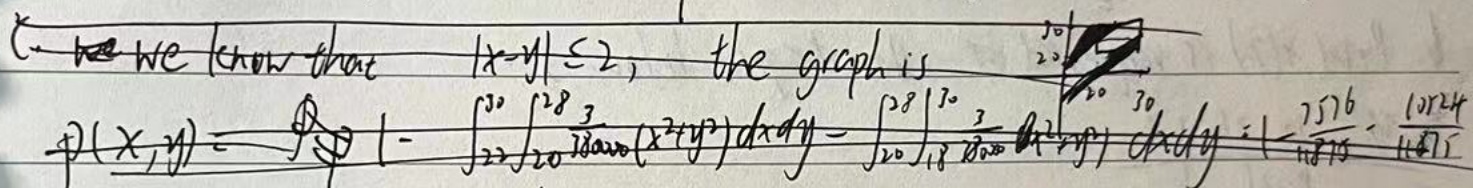 C. we know that |x-y| ≤ 2, the graph is 30 20 20 30
P(x,y) = 1 - ∫_{22}^{30} ∫_{20}^{28} 3/38000 (x²+y²) dxdy - ∫_{20}^{28} ∫_{18}^{30} 3/38000 (x²+y²) dxdy = 1 -